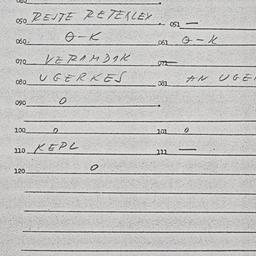 050 RESTE RETEKLEY 051 —
060 O-K 061 O-K
070 VERAMDAK 071
080 UGERKES 081 AN UGE
090 O
100 O 101 O
110 KEPL 111 —
120 O